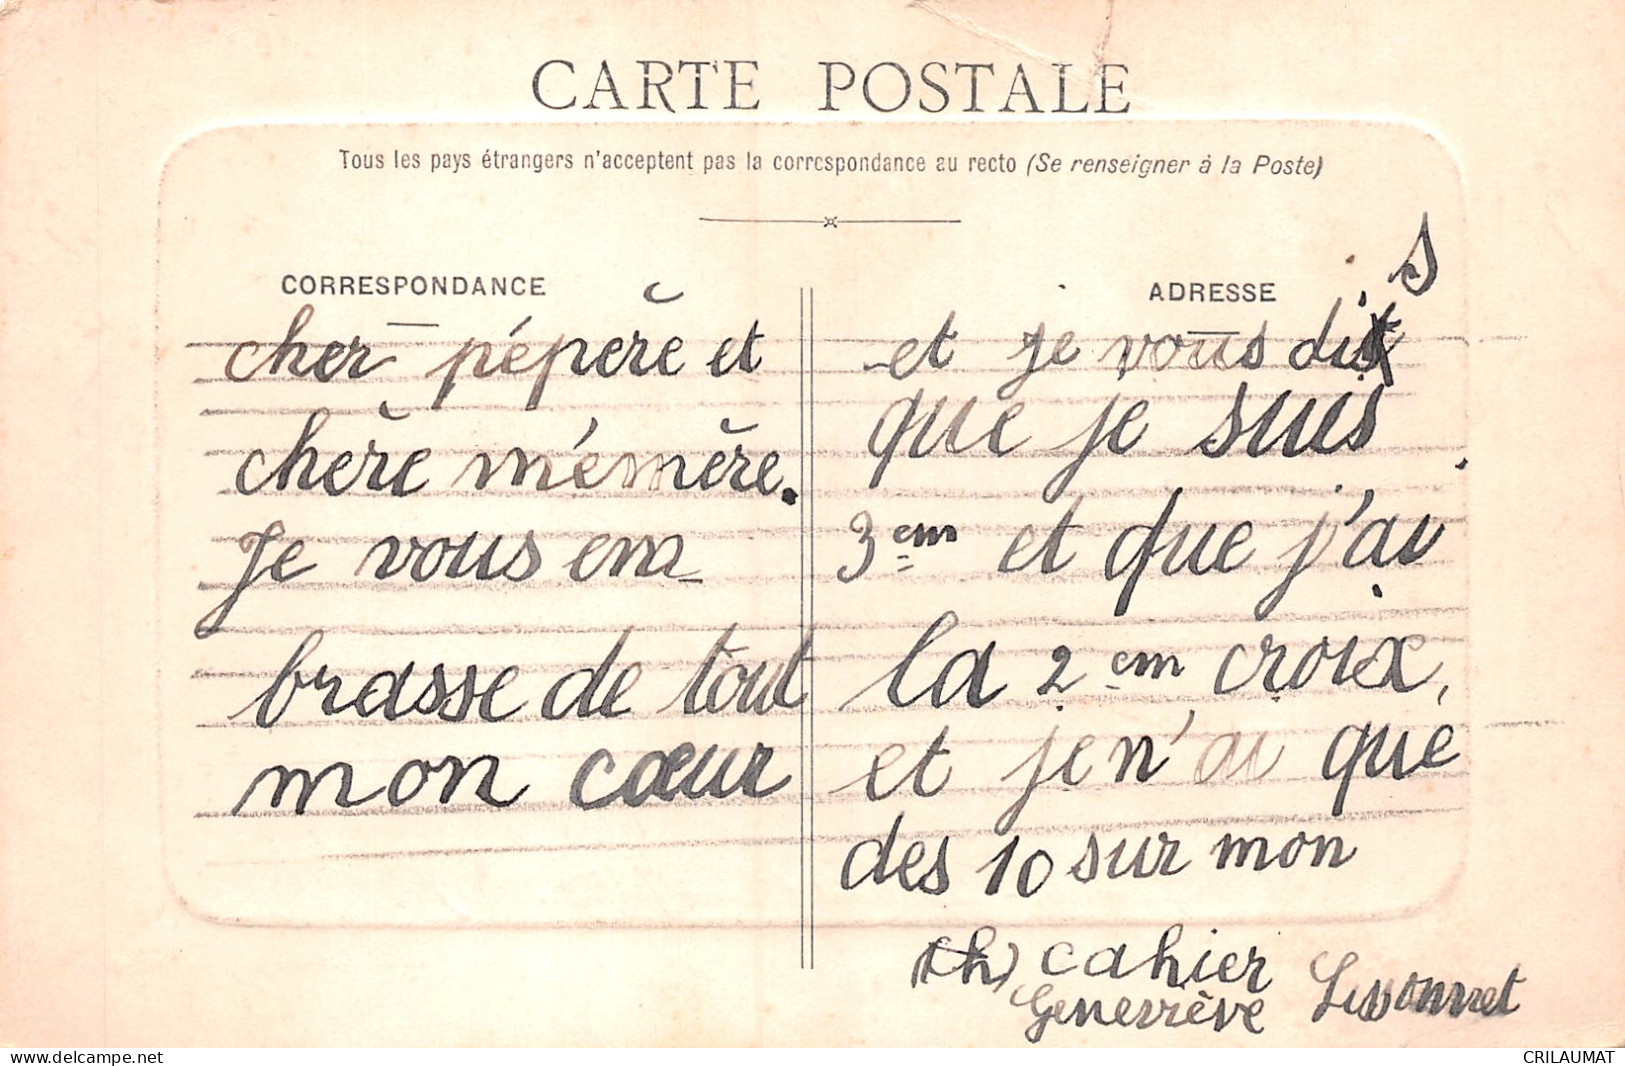 CARTE POSTALE
Tous les pays étrangers n'acceptent pas la correspondance au recto (Se renseigner à la Poste)
CORRESPONDANCE
cher pépère et
chère mémère.
Je vous em_
brasse de tout
mon cœur
ADRESSE
et je vous dis
que je suis
3em et que j'ai
la 2em croix,
et je n'ai que
des 10 sur mon
(ch) cahier
Geneviève
delcampe.net
CRILAUMAT